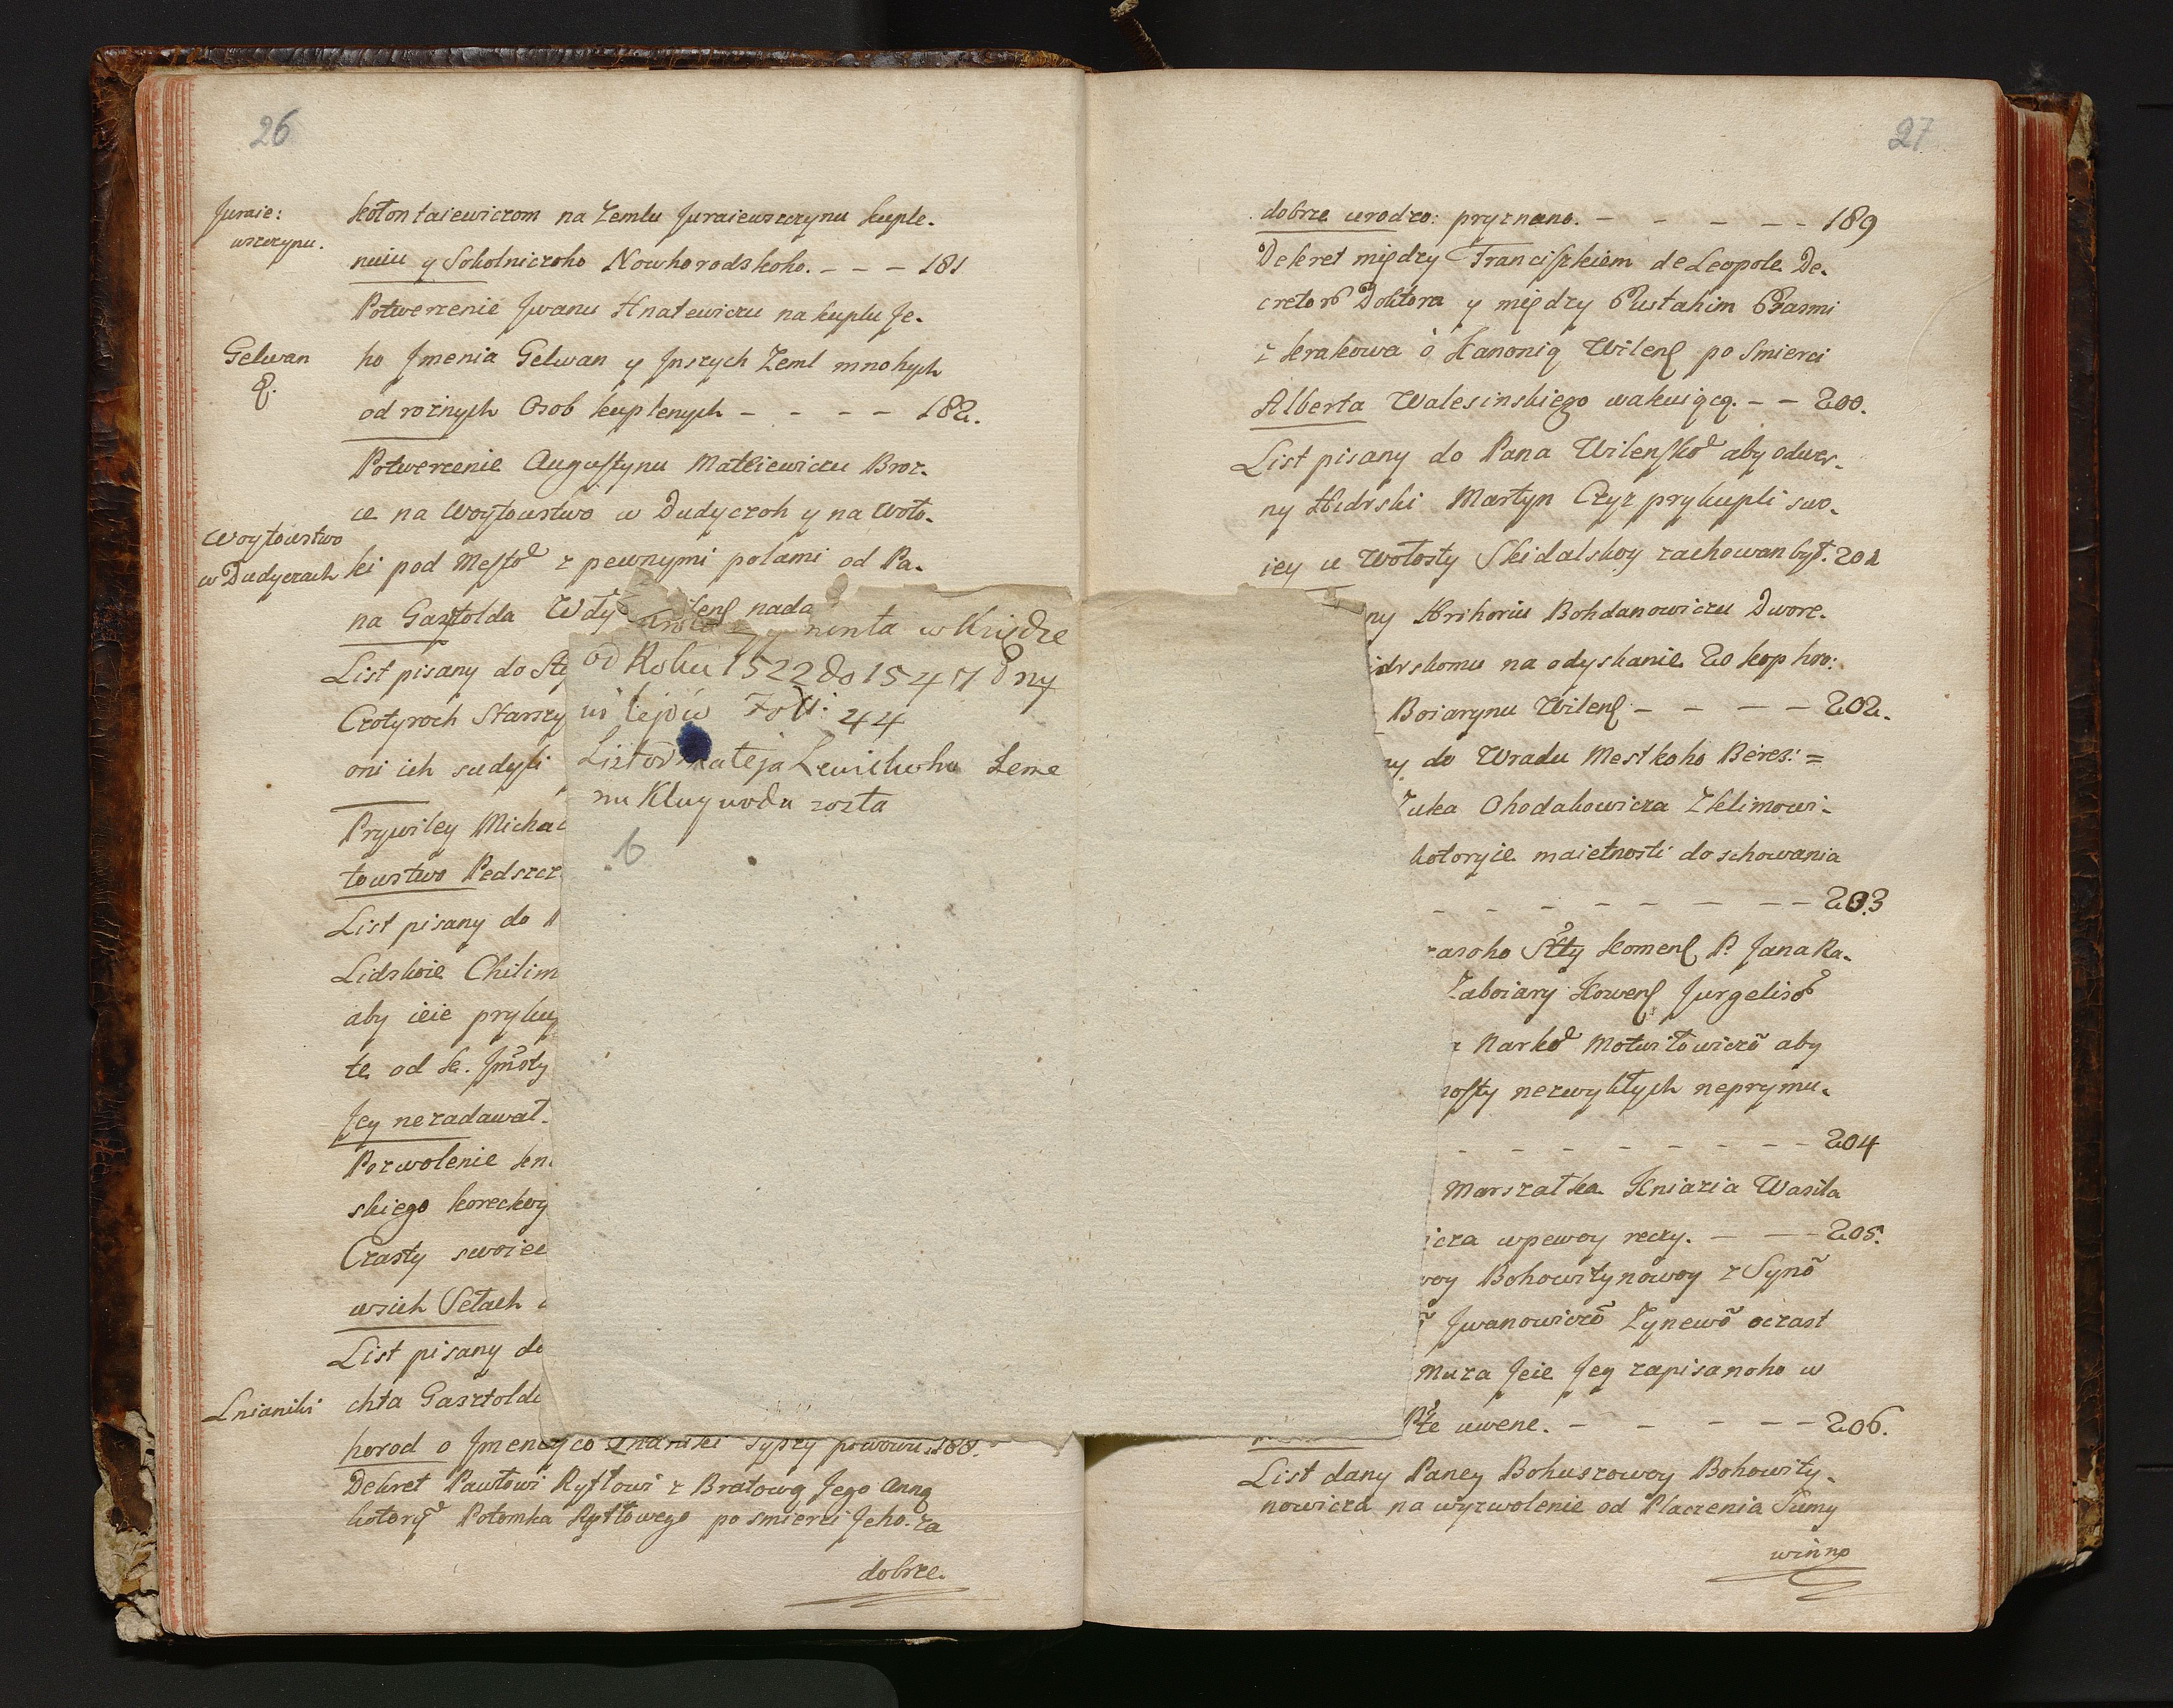 26
Juraie:
wszczynu.
kołontaiewiczom na Zemlu Juraiewszczynu kuple-
nuiu y Sokolniczoho Nowhorodskoho. - - - 181
Potwerzenie Jwanu Hnatewiczu na kuplu Je-
Gelwan
&.
ho Jmenia Gelwan y Jnszych Zeml mnohych
od rożnych Osob kuplenych - - - - 182.
Potwerzenie Augustynu Matieiewiczu Broz-
ce na Woytowstwo w Dudyczoh y na Woło-
Woytowstwo
w Dudyczach
ki pod Mesto z pewnymi polami od Pa-
na Gasztolda Wdy Wilens nada
List pisany do Sta
Czotyroch Starszy
oni ich sudyli
Prywiley Michac
towstwo Pedszcz
List pisany do
Lidskoie Chilim
aby ieie pryku
te od k. Jmsty
Jey nezadawał.
Pozwolenie kn
skiego koreckoy
Czasty swoiee
wsich Sełach
List pisany do
Lnianiki
chta Gasztold
horod o Jmen
Dekret Pawłowi Ryłłowi z Bratową Jego Anną
kotory Potomka Ryłłowego po smierci Jeho. za
dobrze.
w Kiędze
od Roku 1522 do 1547 dny
Foli: 44
List od Mateja
6
27
dobrze urodzo: pryznano. - - - - - 189
Dekret między Franciszkiem de Leopole De-
cretor Doktora y między Eustahim Erasmi
z krakowa o Kanonią Wilens po Smierci
Alberta Walesinskiego wakuiącą. - - 200.
List pisany do Pana Wilensko aby odwer-
ny Hdrski Martyn Czyz prykupli swo-
iey w Wołosty Skidalskoy zachowan był. 201
ny Hrihoriu Bohdanowiczu Dwore-
drskomu na odyskanie 20 kop hro:
Boiarynu Wilens - - - - 202.
ny do Wradu Mestkoho Beres: =
Zuka Chodakowicza Zklimowi-
kotoryie maietnosti do schowania
- - - - - - - - 203
Stty Komens P. Jana Ra-
Zaboiary Kowens Jurgeliso
Narko Motwiłowiczo aby
nezwykłych neprymu-
- - - - - - - - 204
Marszałka Kniazia Wasila
icza wpewoy reczy. - - - 205.
woy Bohowitynowoy z Syno
Jwanowiczo Zynewo oczast
Muza Jeie Jey zapisanoho w
uwene. - - - - - 206.
List dany Paney Bohuszowoy Bohowity-
nowicza na wyzwolenie od Płaczenia Sumy
winno